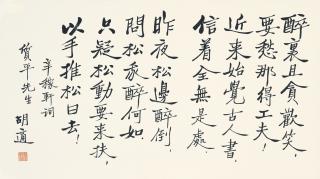 醉裏且貪歡笑，
要愁那得工夫！
近來始覺古人書，
信着全無是處。
昨夜松邊醉倒，
問松我醉何如。
只疑松動要來扶，
以手推松曰去！
辛稼軒詞
貨平先生
胡適